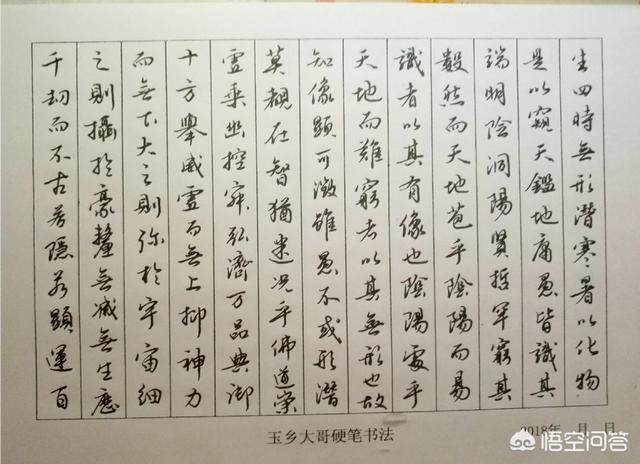 生四時無形潛寒暑以化物
是以窺天鑑地庸愚皆識其
端明陰洞陽賢哲罕窮其
數然而天地苞乎陰陽而易
識者以其有像也陰陽處乎
天地而難窮者以其無形也故
知像顯可徵雖愚不惑形潛
莫覩在智猶迷况乎佛道崇
虛乘幽控寂弘濟万品典御
十方舉威靈而無上抑神力
而無下大之則弥於宇宙細
之則攝於豪釐無滅無生歷
千劫而不古若隱若顯運百
玉乡大哥硬笔书法
2018年 月 日
悟空问答